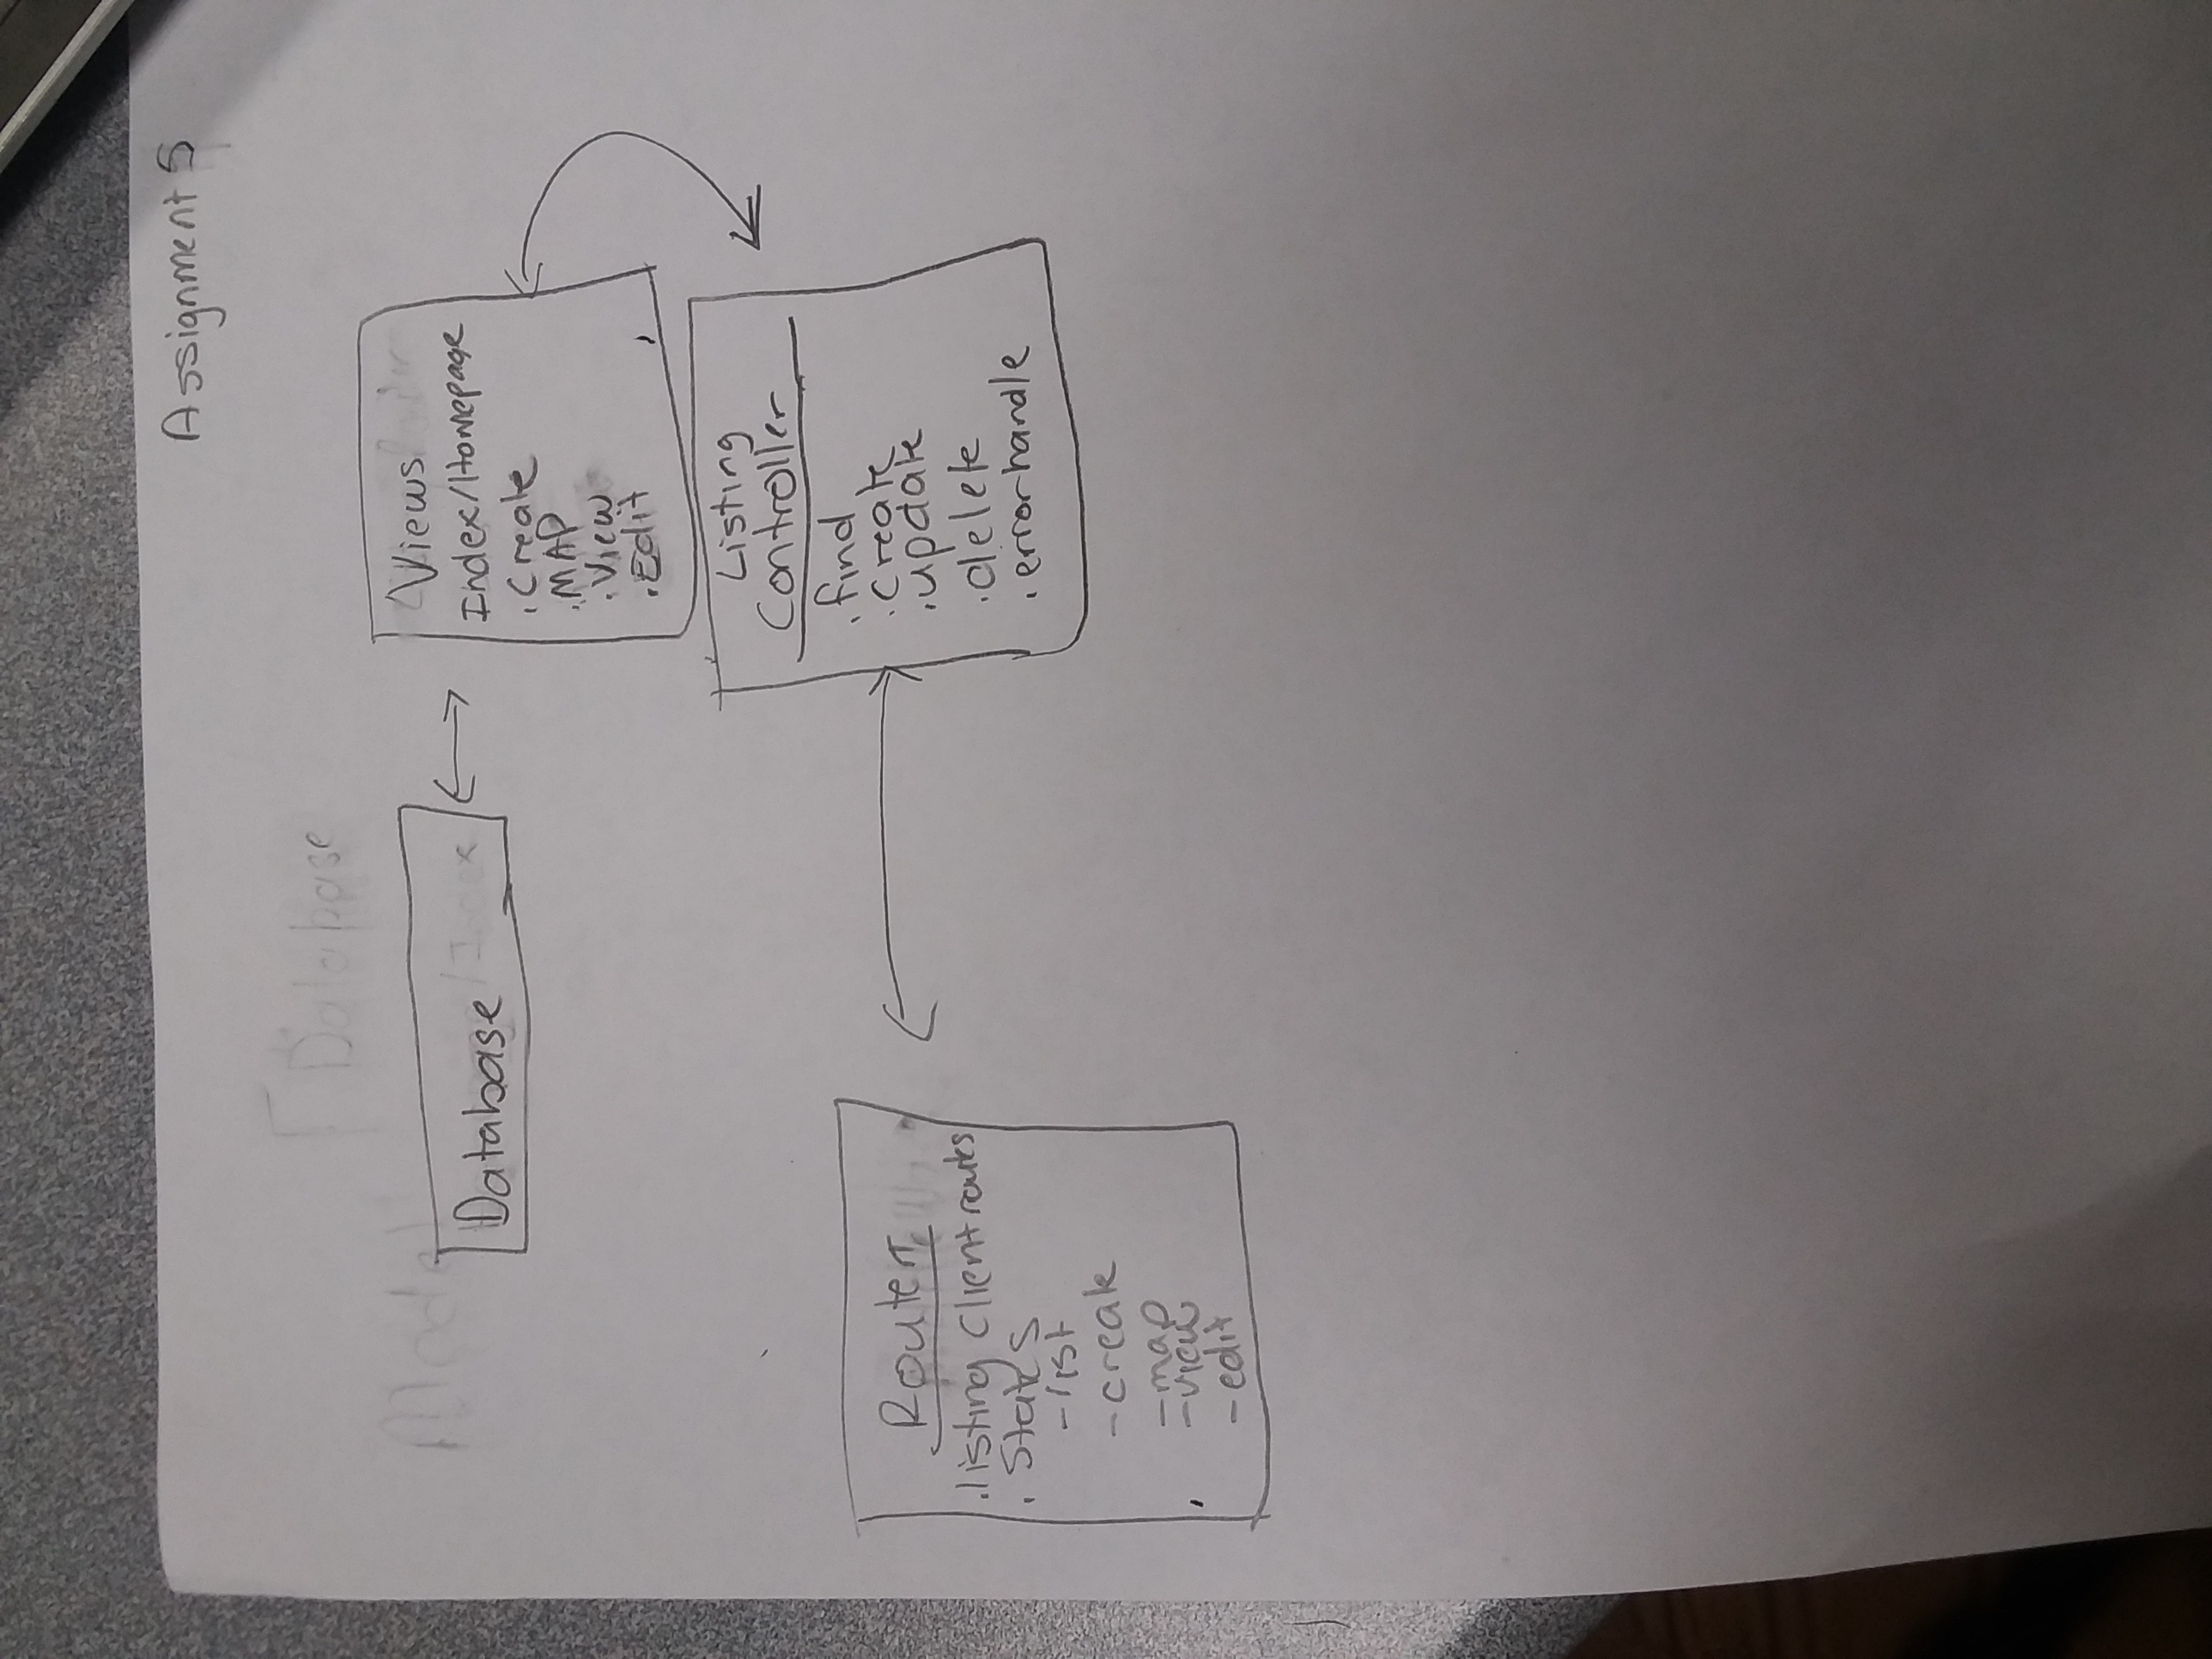 Assignment 5
Database
Model
Database
Views
Index/Homepage
.Create
.MAP
.View
.Edit
Listing
Controller
.find
.create
.update
.delete
.errorhandle
Router
.listing Client routes
.States
-list
-create
-map
-view
-edit